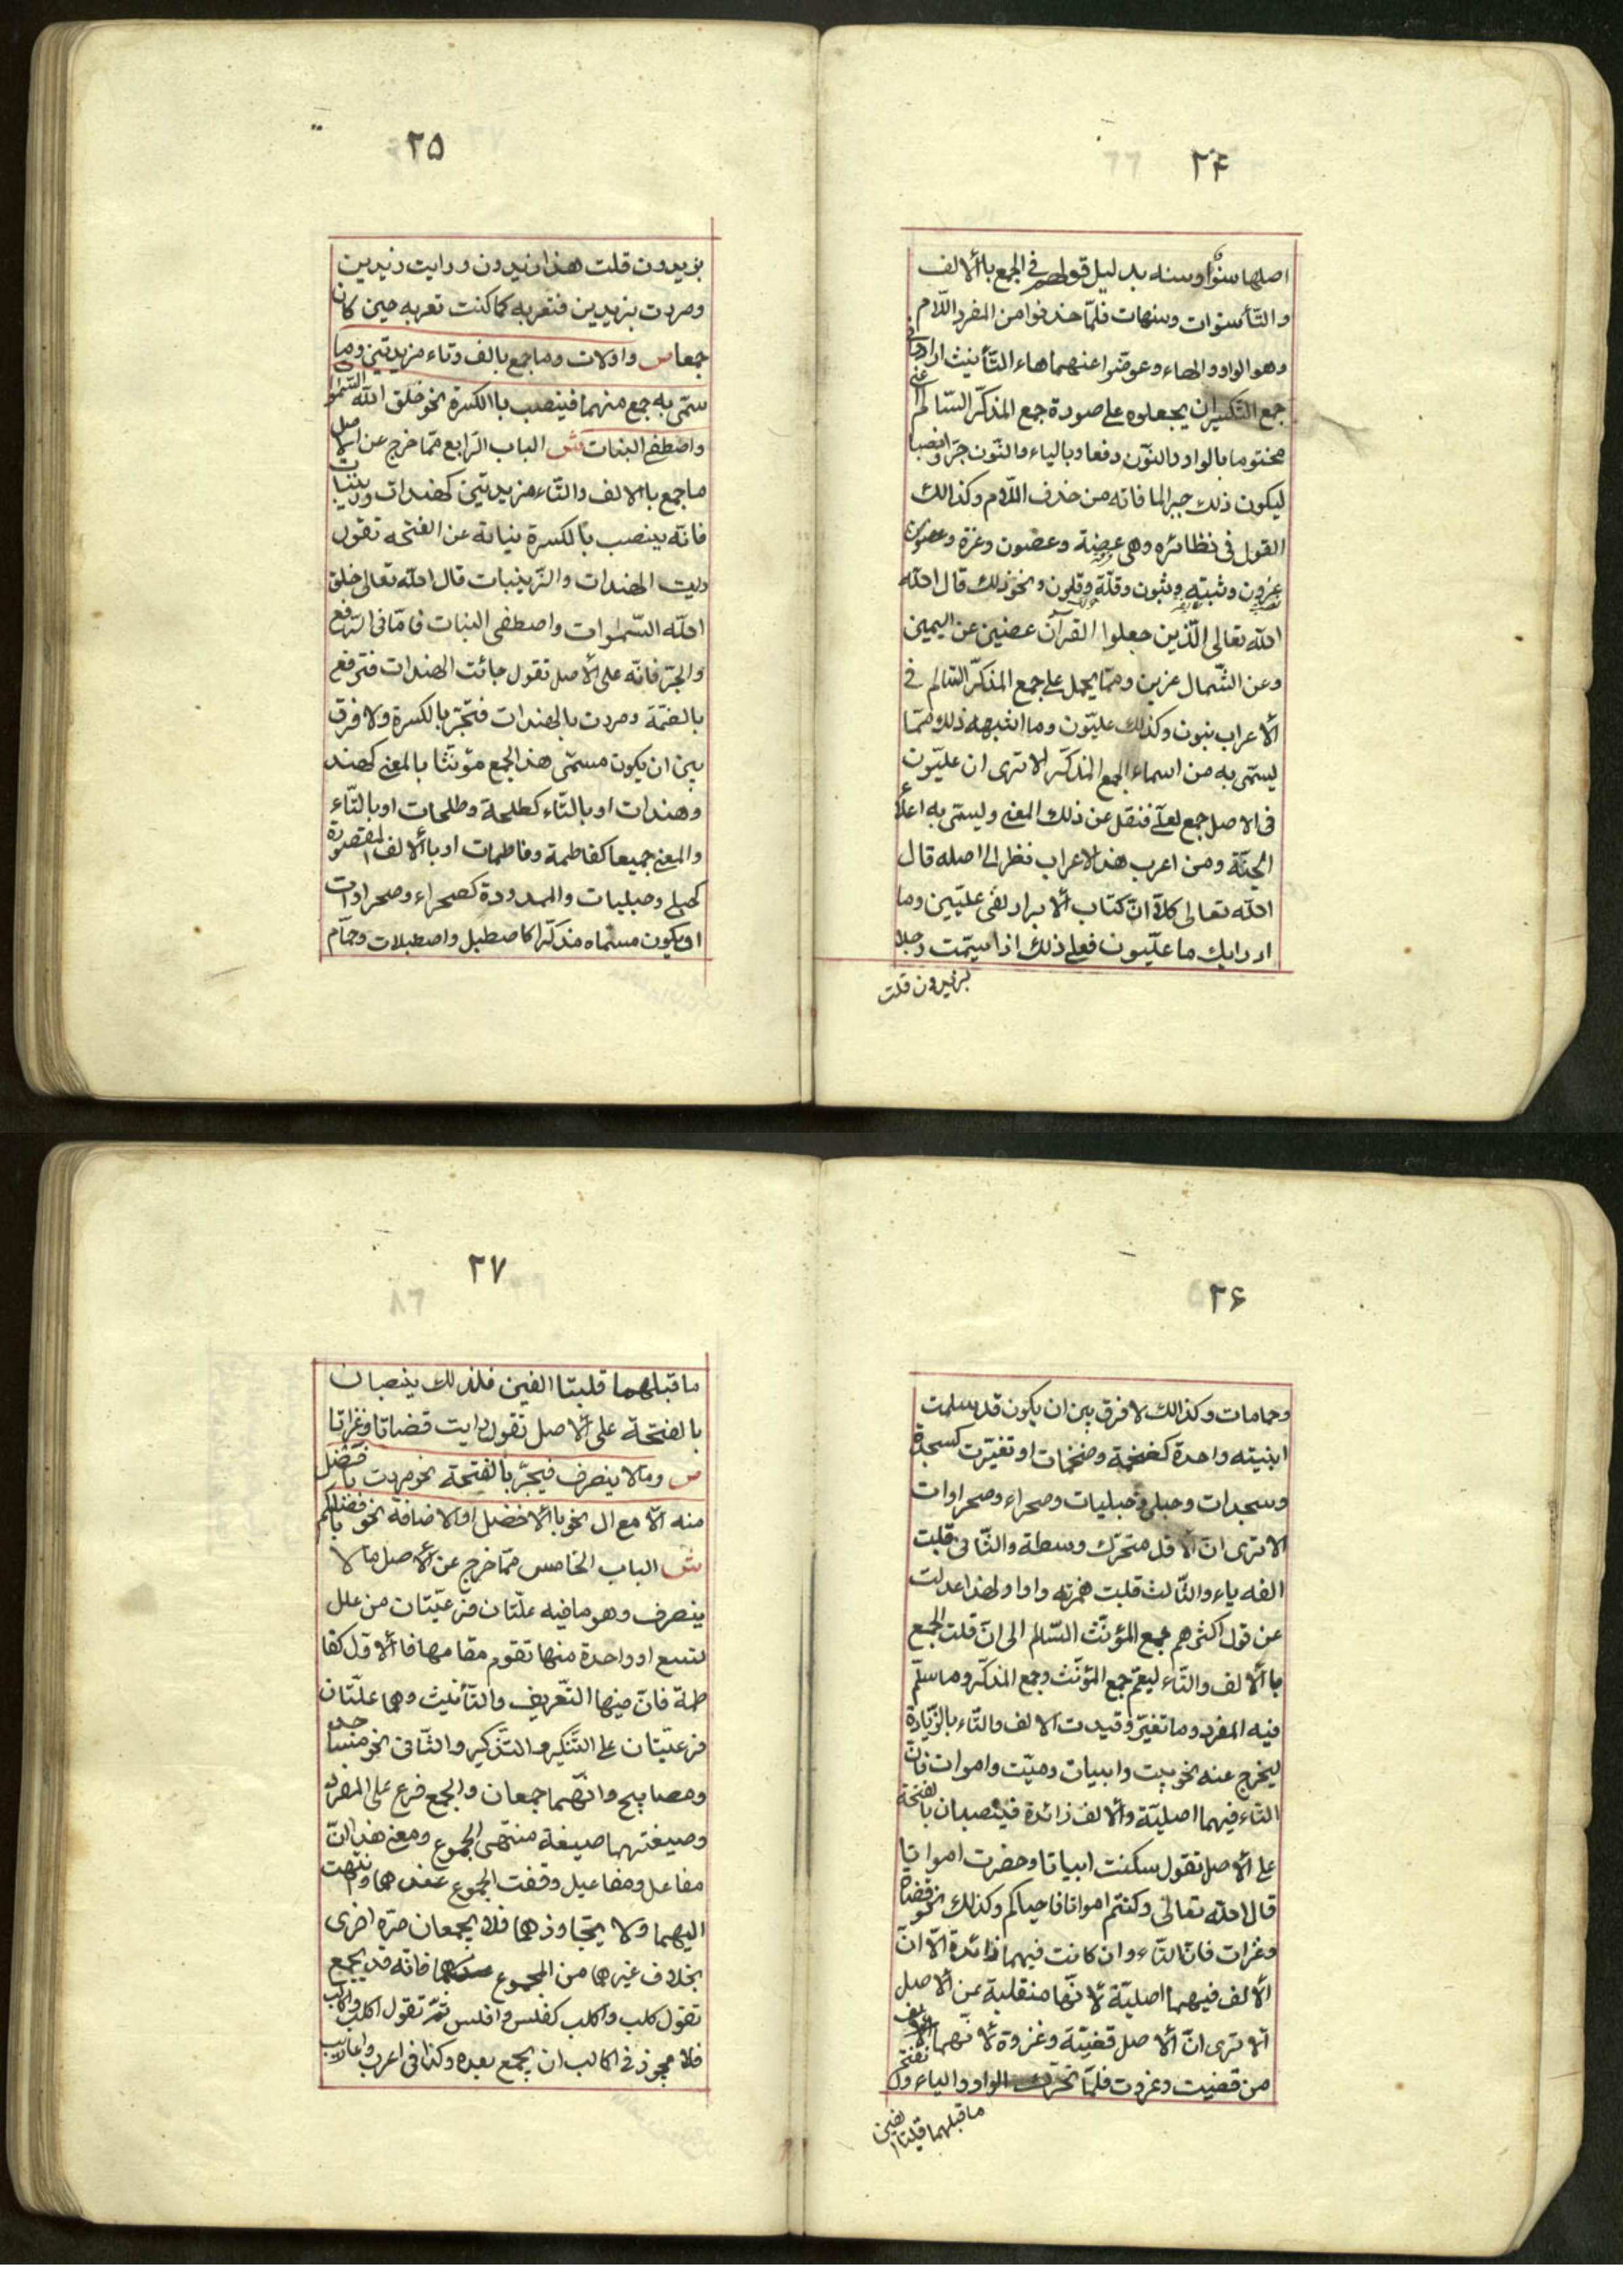 ۲۴
اصلها سنو او سنه بدليل قولهم في الجمع باالالف
والتّأ سنوات وسنهات فلمّا حذفوا من المفرد اللّام
وهو الواو والهاء وعوضّوا عنهما هاء التّأنيث ارادوا في
جمع التكسير ان يجعلوه على صورة جمع المذكّر السّالم اعني
مختوما بالواو والنّون رفعا وبالياء والنّون جرّا ونصبا
ليكون ذلك جبرا لما فاته من حذف اللّام وكذالك
القول في نظائره وهي عضة وعضون وعزة وعضون
عزون وثبته وثبون وقلّة وقلون ونحو ذلك قال الله
الله تعالى الّذين جعلوا القرآن عضين عن اليمين
وعن الشّمال عزين وممّا يحمل على جمع المذكّر السّالم في
ألاعراب بنون وكذلك عليّون وما اشبهه ذلك ممّا
ليسمّى به من اسماء الجمع المذكّر الا ترى ان عليّون
في الاصل جمع لعلّى فنقل عن ذلك المعنى وليسمّى به اعلا
الجنّة ومن اعرب هذا الاعراب نظرا الى اصله قال
الله تعالى كلاّ انّ كتاب ألابرار لفى عليّين وما
ادرايك ما علّيون فعلى ذلك اذا سيمّت رجلا
بزيدون قلت
۲۵
بزيدون قلت هذا زيدون ورايت زيدين
ومررت بزيدين فتعربه كما كنت تعربه حين كان
جمعا ص واولات وما جمع بالف وتاء مزيدتين وما
سمّى به جمع منهما فينصب باالكسرة نحو خلق الله السّموا
واصطفى البنات ش الباب الرّابع ممّا خرج عن الاصل
ما جمع باالالف والتّاء مزيدتين كهندات وزينبات
فانّه ينصب باالكسرة نيابة عن الفتحه تقول
رايت الهندات والزّينبات قال الله تعالى خلق
الله السّموات واصطفى البنات فامّا في الرّفع
والجرّ فانّه على ألاصل تقول جائت الهندات فترفع
بالضّمّة ومررت بالهندات فتجّر بالكسرة ولا فرق
بين ان يكون مسمّى هذا الجمع مؤنثا بالمعنى كهند
وهندات او بالتّاء كطلحة وطلحات او بالتّاء
والمعنى جميعا كفاطمة وفاطمات او باالالف المقصورة
كحبلى وحبليات والممدودة كصحراء وصحراوات
او يكون مسماه مذكّرا كاصطبل واصطبلات وحمّام
۲۶
وحمامات وكذالك لا فرق بين ان يكون قد سلمت
ابنيته واحدة كضخمة وضخمات او تغيّرت كسجدة
وسجدات وحبلى وحبليات وصحراء وصحراوات
الا ترى انّ ألاوّل متحرّك وسطه والثّانى قلبت
الفه ياء والثّالث قلبت همزته واوا ولهذا عدلت
عن قول اكثرهم جمع المؤنّث السّالم الى انّ قلت الجمع
باالالف والتّاء ليعمّ جمع المؤنّث وجمع المذكّر وما سلّم
فيه المفرد وما تغيّر وقيدت الالف والتّاء بالزّيادة
ليخرج عنه نحو بيت وابيات وميّت واموات فانّ
التاء فيهما اصليّة وألالف زائدة فينصبان بالفتحة
على ألاصل تقول سكنت ابياتا وحضرت امواتا
قال الله تعالى وكنتم امواتا فاحياكم وكذلك نحو قضاة
وغزات فانّ التاء وان كانت فيهما زائدة الاّ انّ
ألالف فيهما اصليّة لأنّها منقلبة عن ألاصل
ألا ترى انّ ألاصل قضيّة وغزوة لأنّهما
من قضيت وغزوت فلمّا تحرّكت الواو والياء وانفتح
ما قبلهما قلبتا الفين
۲۷
ما قبلهما قلبتا الفين فلذلك ينصبان
بالفتحة على ألاصل تقول رايت قضاتا وغزاتا
ص وما لا ينصرف فيجرّ بالفتحة نحو مررت بافضل
منه الاّ مع ال نحو باالافضل او الاضافة نحو بافضلكم
ش الباب الخامس ممّا خرج عن ألاصل ما لا
ينصرف وهو ما فيه علّتان فرعيّتان من علل
لتسع او واحدة منها تقوم مقامها فاألاوّل كفا
طمة فانّ فيها التّعريف والتّأنيث وهما علّتان
فرعيّتان على التّنكير والتّذكير والثّانى نحو مساجد
ومصابيح وانّهما جمعان والجمع فرع على المفرد
وصيغتهما صيغة منتهى الجموع ومعنى هذا انّ
مفاعل ومفاعيل وقفت الجموع عندهما وانتهت
اليهما ولا يتجاوزهما فلا يجمعان مرّة اخرى
بخلاف غيرهما من الجموع فانّه قد يجمع
تقول كلب واكلب كفلس وافلس ثمّ تقول اكلب واكالب
فلا يجوز في اكالب ان يجمع بعده وكذا في اعرب واعاريب